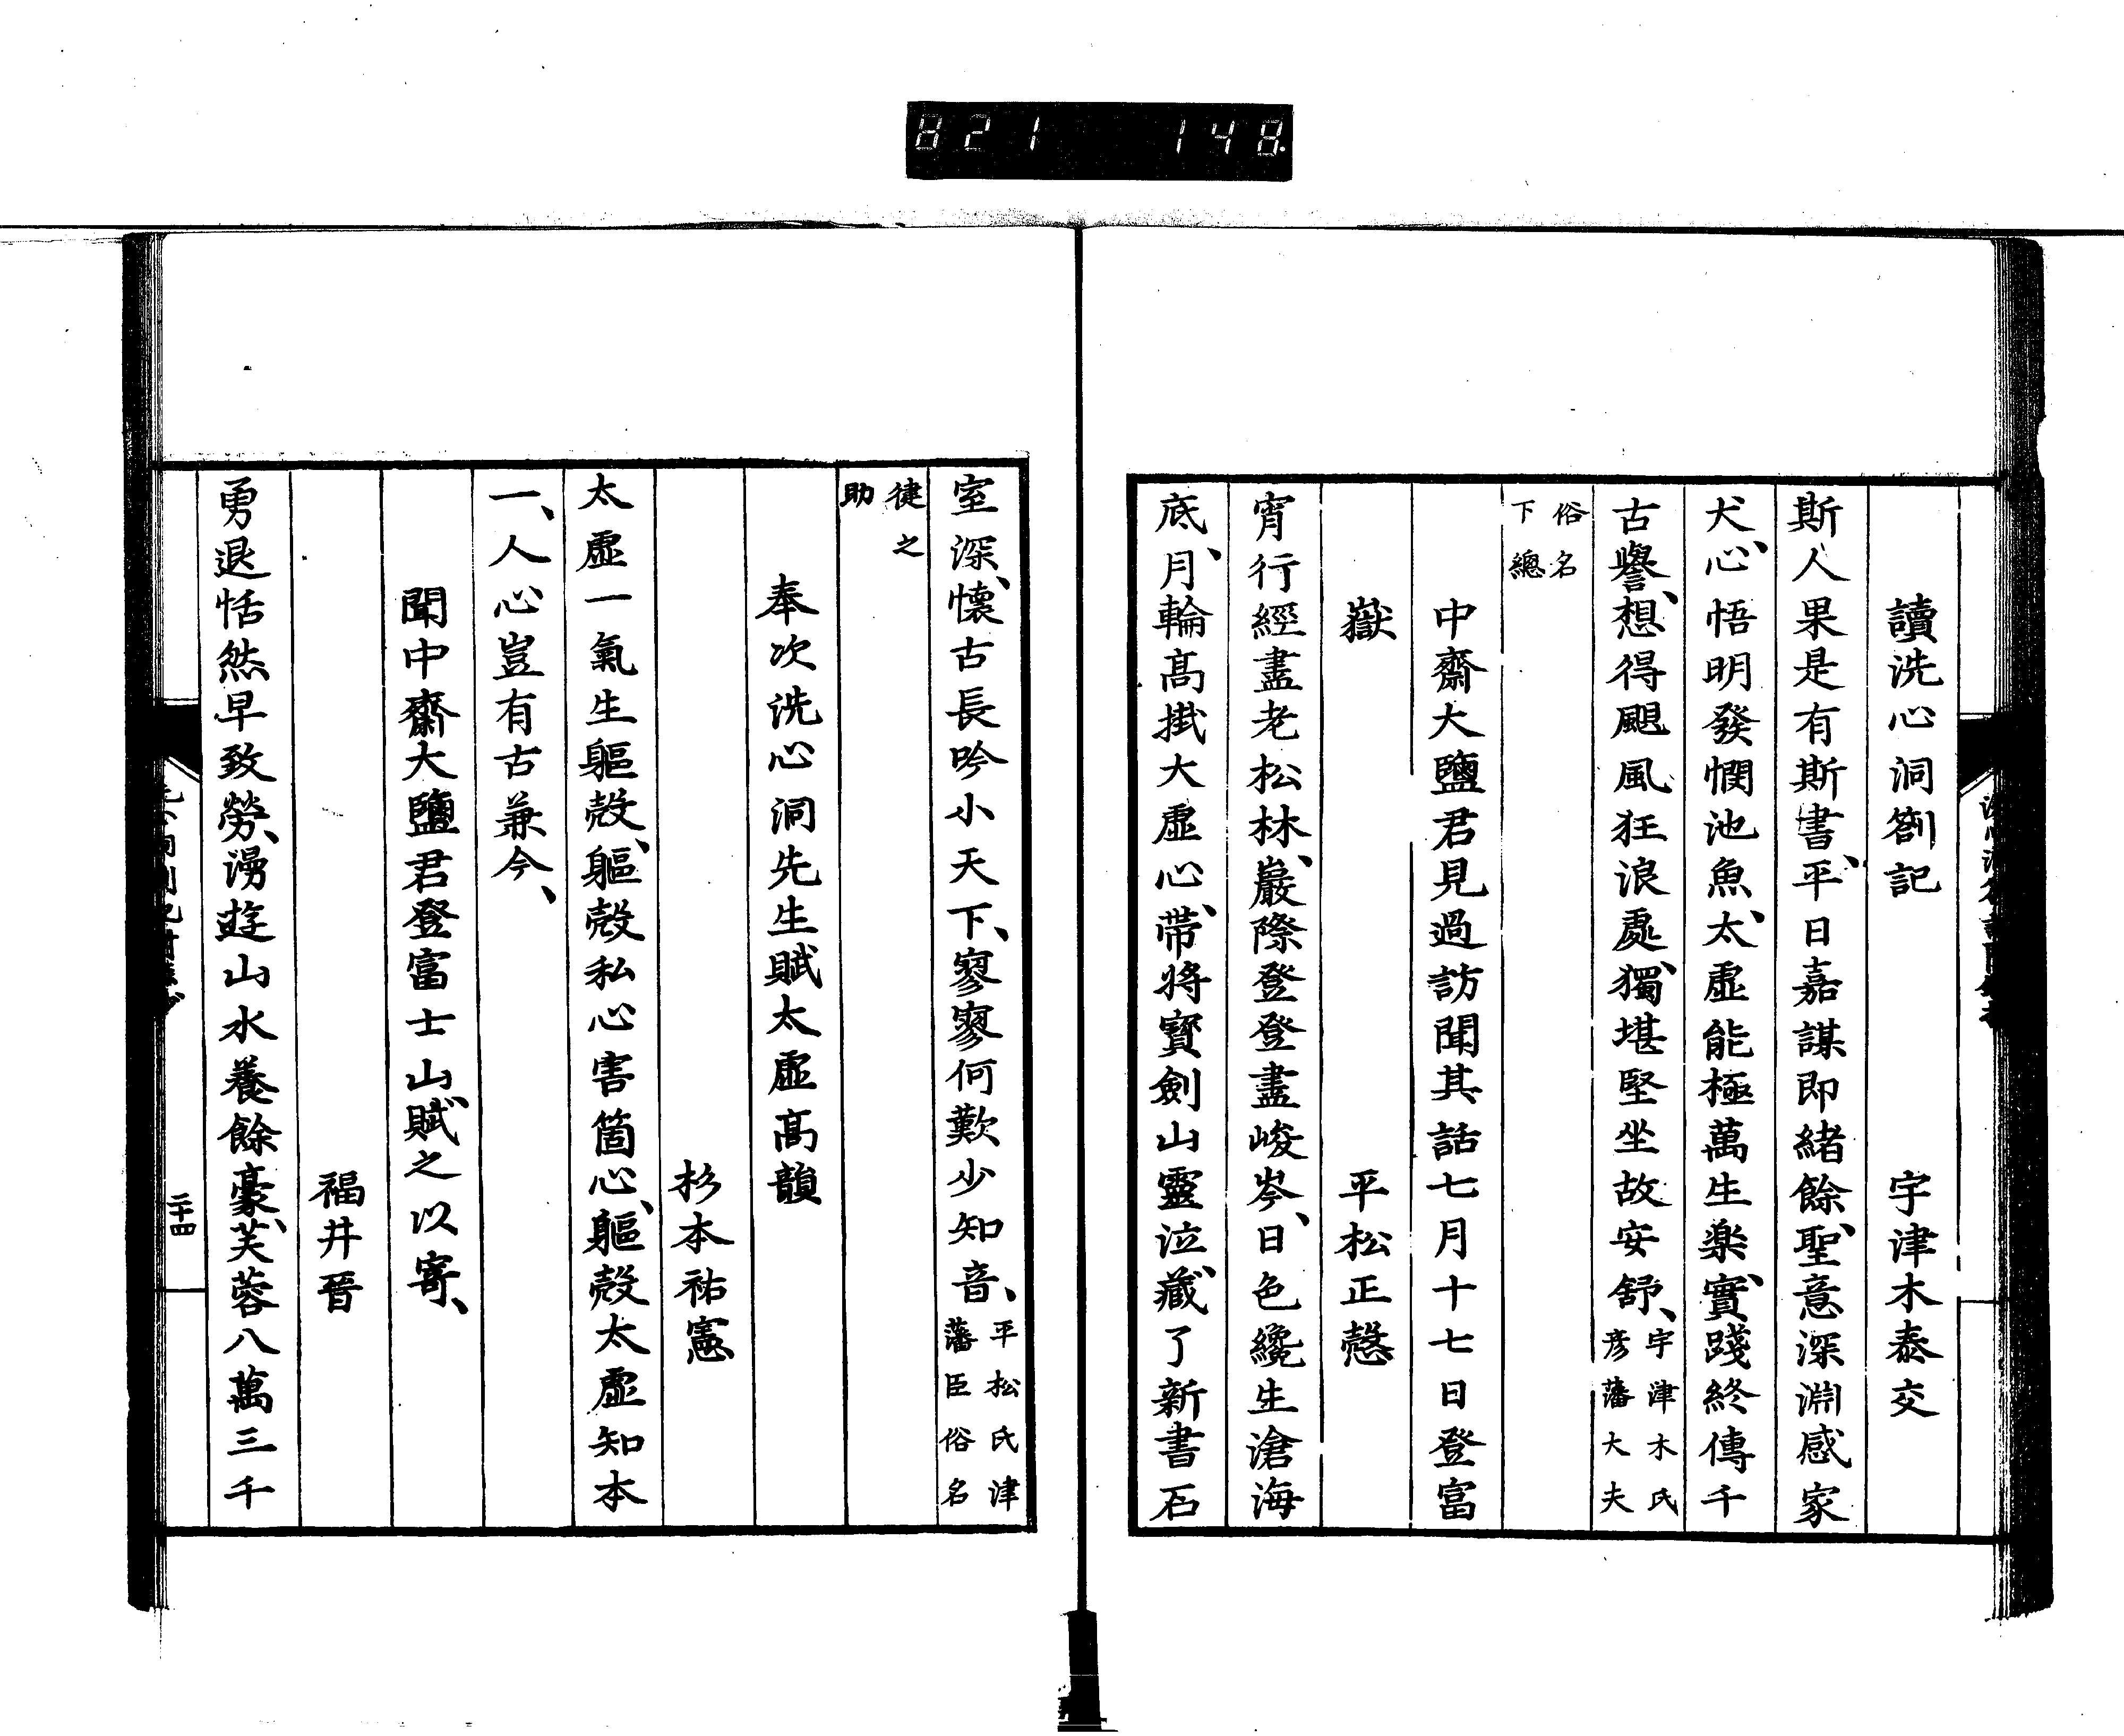 821 148
讀洗心洞劄記 宇津木泰交
斯人果是有斯書、平日嘉謀即緒餘、聖意深淵感家
犬、心悟明發憫池魚、太虛能極萬生樂、實踐終傳千
古譽、想得颶風狂浪處、獨堪堅坐故安舒、宇津木氏彥藩大夫
俗名下總
中齋大鹽君見過訪聞其話七月十七日登富
嶽 平松正愨
宵行經盡老松林、巖際登登盡峻岑、日色纔生滄海
底、月輪高掛大虛心、帶將寶劍山靈泣、藏了新書石
室深、懷古長吟小天下、寥寥何歎少知音、平松氏津藩臣俗名
健之助
奉次洗心洞先生賦太虛高韻
杉本祐憲
太虛一氣生軀殼、軀殼私心害箇心、軀殼太虛知本
一、人心豈有古兼今、
聞中齋大鹽君登富士山、賦之以寄、
福井晉
勇退恬然早致勞、漫遊山水養餘豪、芙蓉八萬三千
二十四